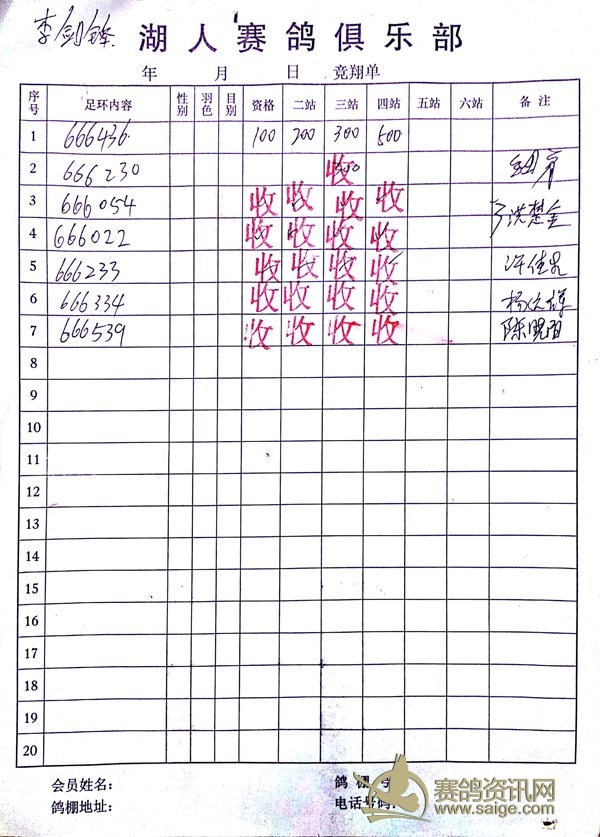 李剑锋 湖人赛鸽俱乐部
年 月 日 竞翔单
序号 足环内容 性别 羽色 目别 资格 二站 三站 四站 五站 六站 备注
1 666436 100 200 300 500
2 666230 收
3 666054 收 收 收 收 洪楚金
4 666022 收 收 收 收
5 666233 收 收 收 收
6 666334 收 收 收 收
7 666539 收 收 收 收 陈晓雨
8
9
10
11
12
13
14
15
16
17
18
19
20
会员姓名： 鸽棚号
鸽棚地址： 电话号码：
赛鸽资讯网
www.saige.com